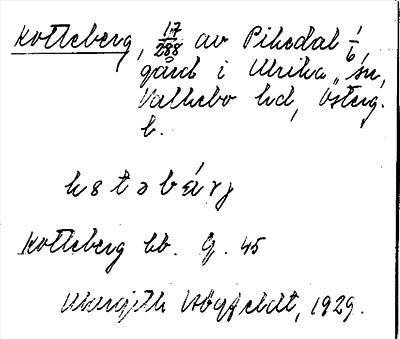 Kolleberg, 17/288 av Pikedal 1/6,
gård i Ulrika sn,
Valkebo hd, Österg.
l.
Kolleberg hb. G. 45
Margith Högfeldt, 1929.